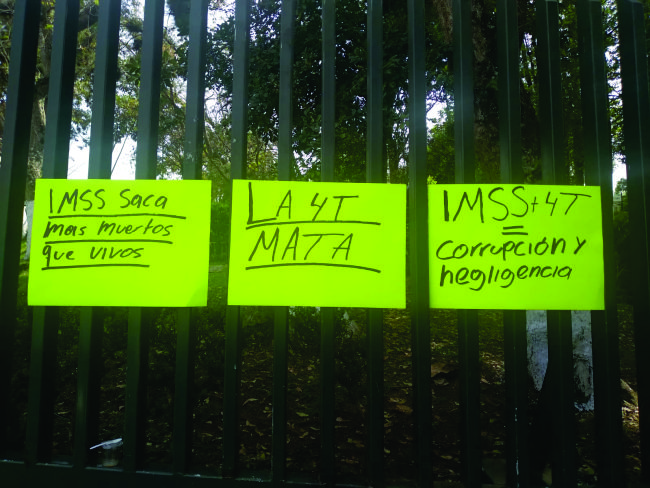 IMSS Saca
mas muertos
que vivos
LA 4T
MATA
IMSS+4T
=
corrupción y
negligencia